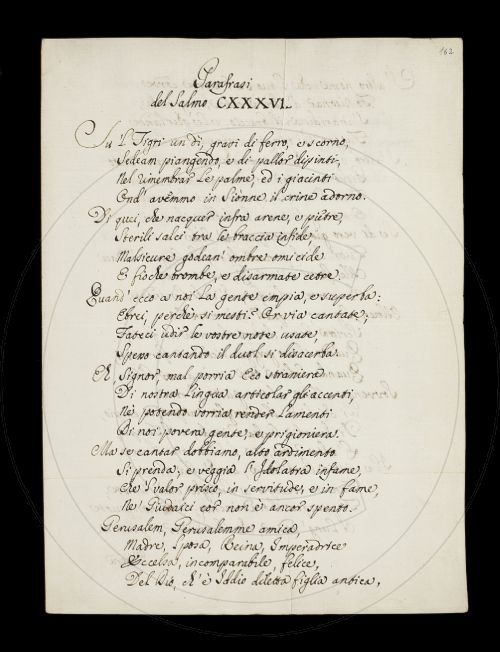 162
Parafrasi
del Salmo CXXXVI.
Su 'l Tigri un dì, gravi di ferro, e scorno,
Sedean piangendo, e di pallor dipinti,
Nel rimembrar le palme, ed i giacinti
Ond' avemmo in Sionne il crine adorno.
Di quei, che nacquer infra arene, e pietre,
Sterili salci tra le braccia infide,
Malsicure godean' ombre omicide
E fioche trombe, e disarmate cetre.
Quand' ecco a noi la gente empia, e superba:
Ebrei, perchè sì mesti? Or via cantate,
Fateci udir le vostre note usate,
Spesso cantando il duol si disacerba.
Ah, Signor, mal porria Eco straniera
Di nostra lingua articolar gli accenti,
Nè potendo vorria render lamenti
Di noi povera gente, e prigioniera.
Ma se cantar dobbiamo, alto ardimento
Si prenda, e veggia l'Idolatra infame,
Che 'l valor prisco, in servitude, e in fame,
Ne' Giudaici cor non è ancor spento.
Gerusalem, Gerusalemme amica,
Madre, Sposa, Reina, Imperadrice
Eccelsa, incomparabile, felice,
Del Dio, ch' è Iddio diletta figlia antica,